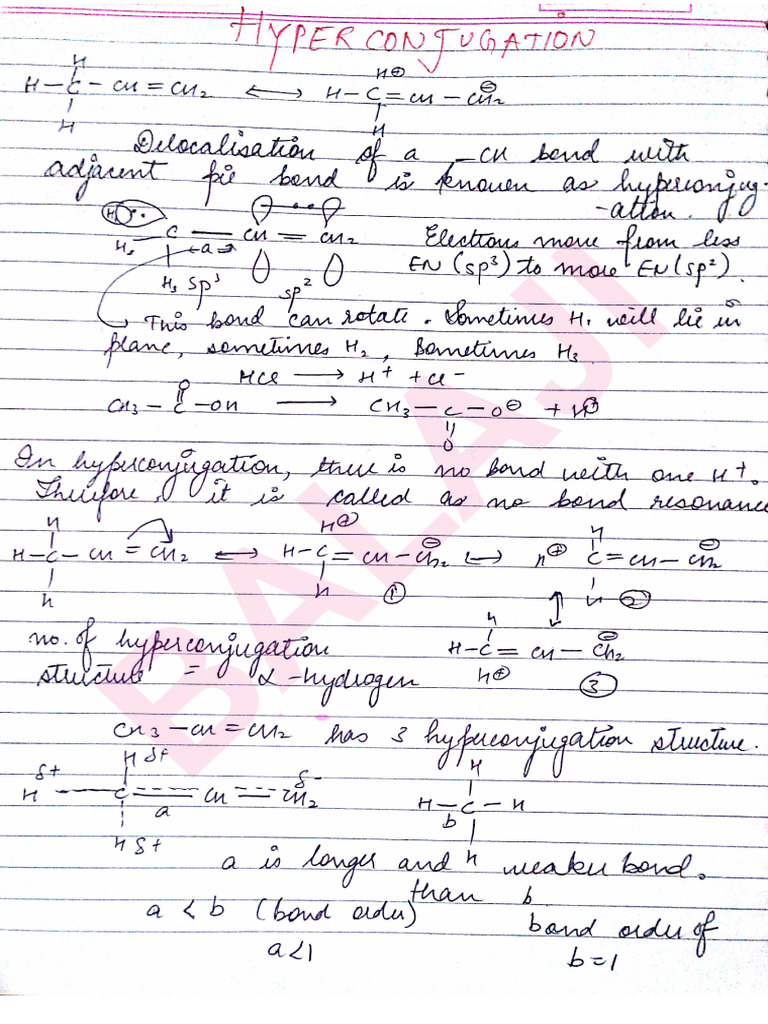 HYPERCONJUGATION
H
H – C – CH = CH2 ⟷ H – C = CH – CH2
H⊕ ⊖
H H
Delocalisation of a – CH bond with
adjacent pie bond is known as hyperconjug-
-ation.
H1 C CH = CH2
H2 a
H3 sp3 sp2
Electrons move from less
EN (sp3) to more EN (sp2).
This bond can rotate. Sometimes H1 will lie in
plane, sometimes H2, Sometimes H3
HCl → H+ + Cl-
O
CH3 – C – OH → CH3 – C – O⊖ + H⊕
O
In hyperconjugation, there is no bond with one H+.
Therefore, it is called as no bond resonance
H H⊕ ⊖ H ⊖
H – C – CH = CH2 ⟷ H – C = CH – CH2 ⟷ H⊕ C = CH – CH2
H H ① H ②
no. of hyperconjugation
structure = α - hydrogen
H ⊖
H – C = CH – CH2
H⊕ ③
CH3 – CH = CH2 has 3 hyperconjugation structure.
H δ+
δ+ δ-
H C CH CH2
a
H δ+
H
H – C – H
b
H
a is longer and weaker bond.
than b
a < b (bond order)
a < 1
bond order of
b = 1
BALAJI